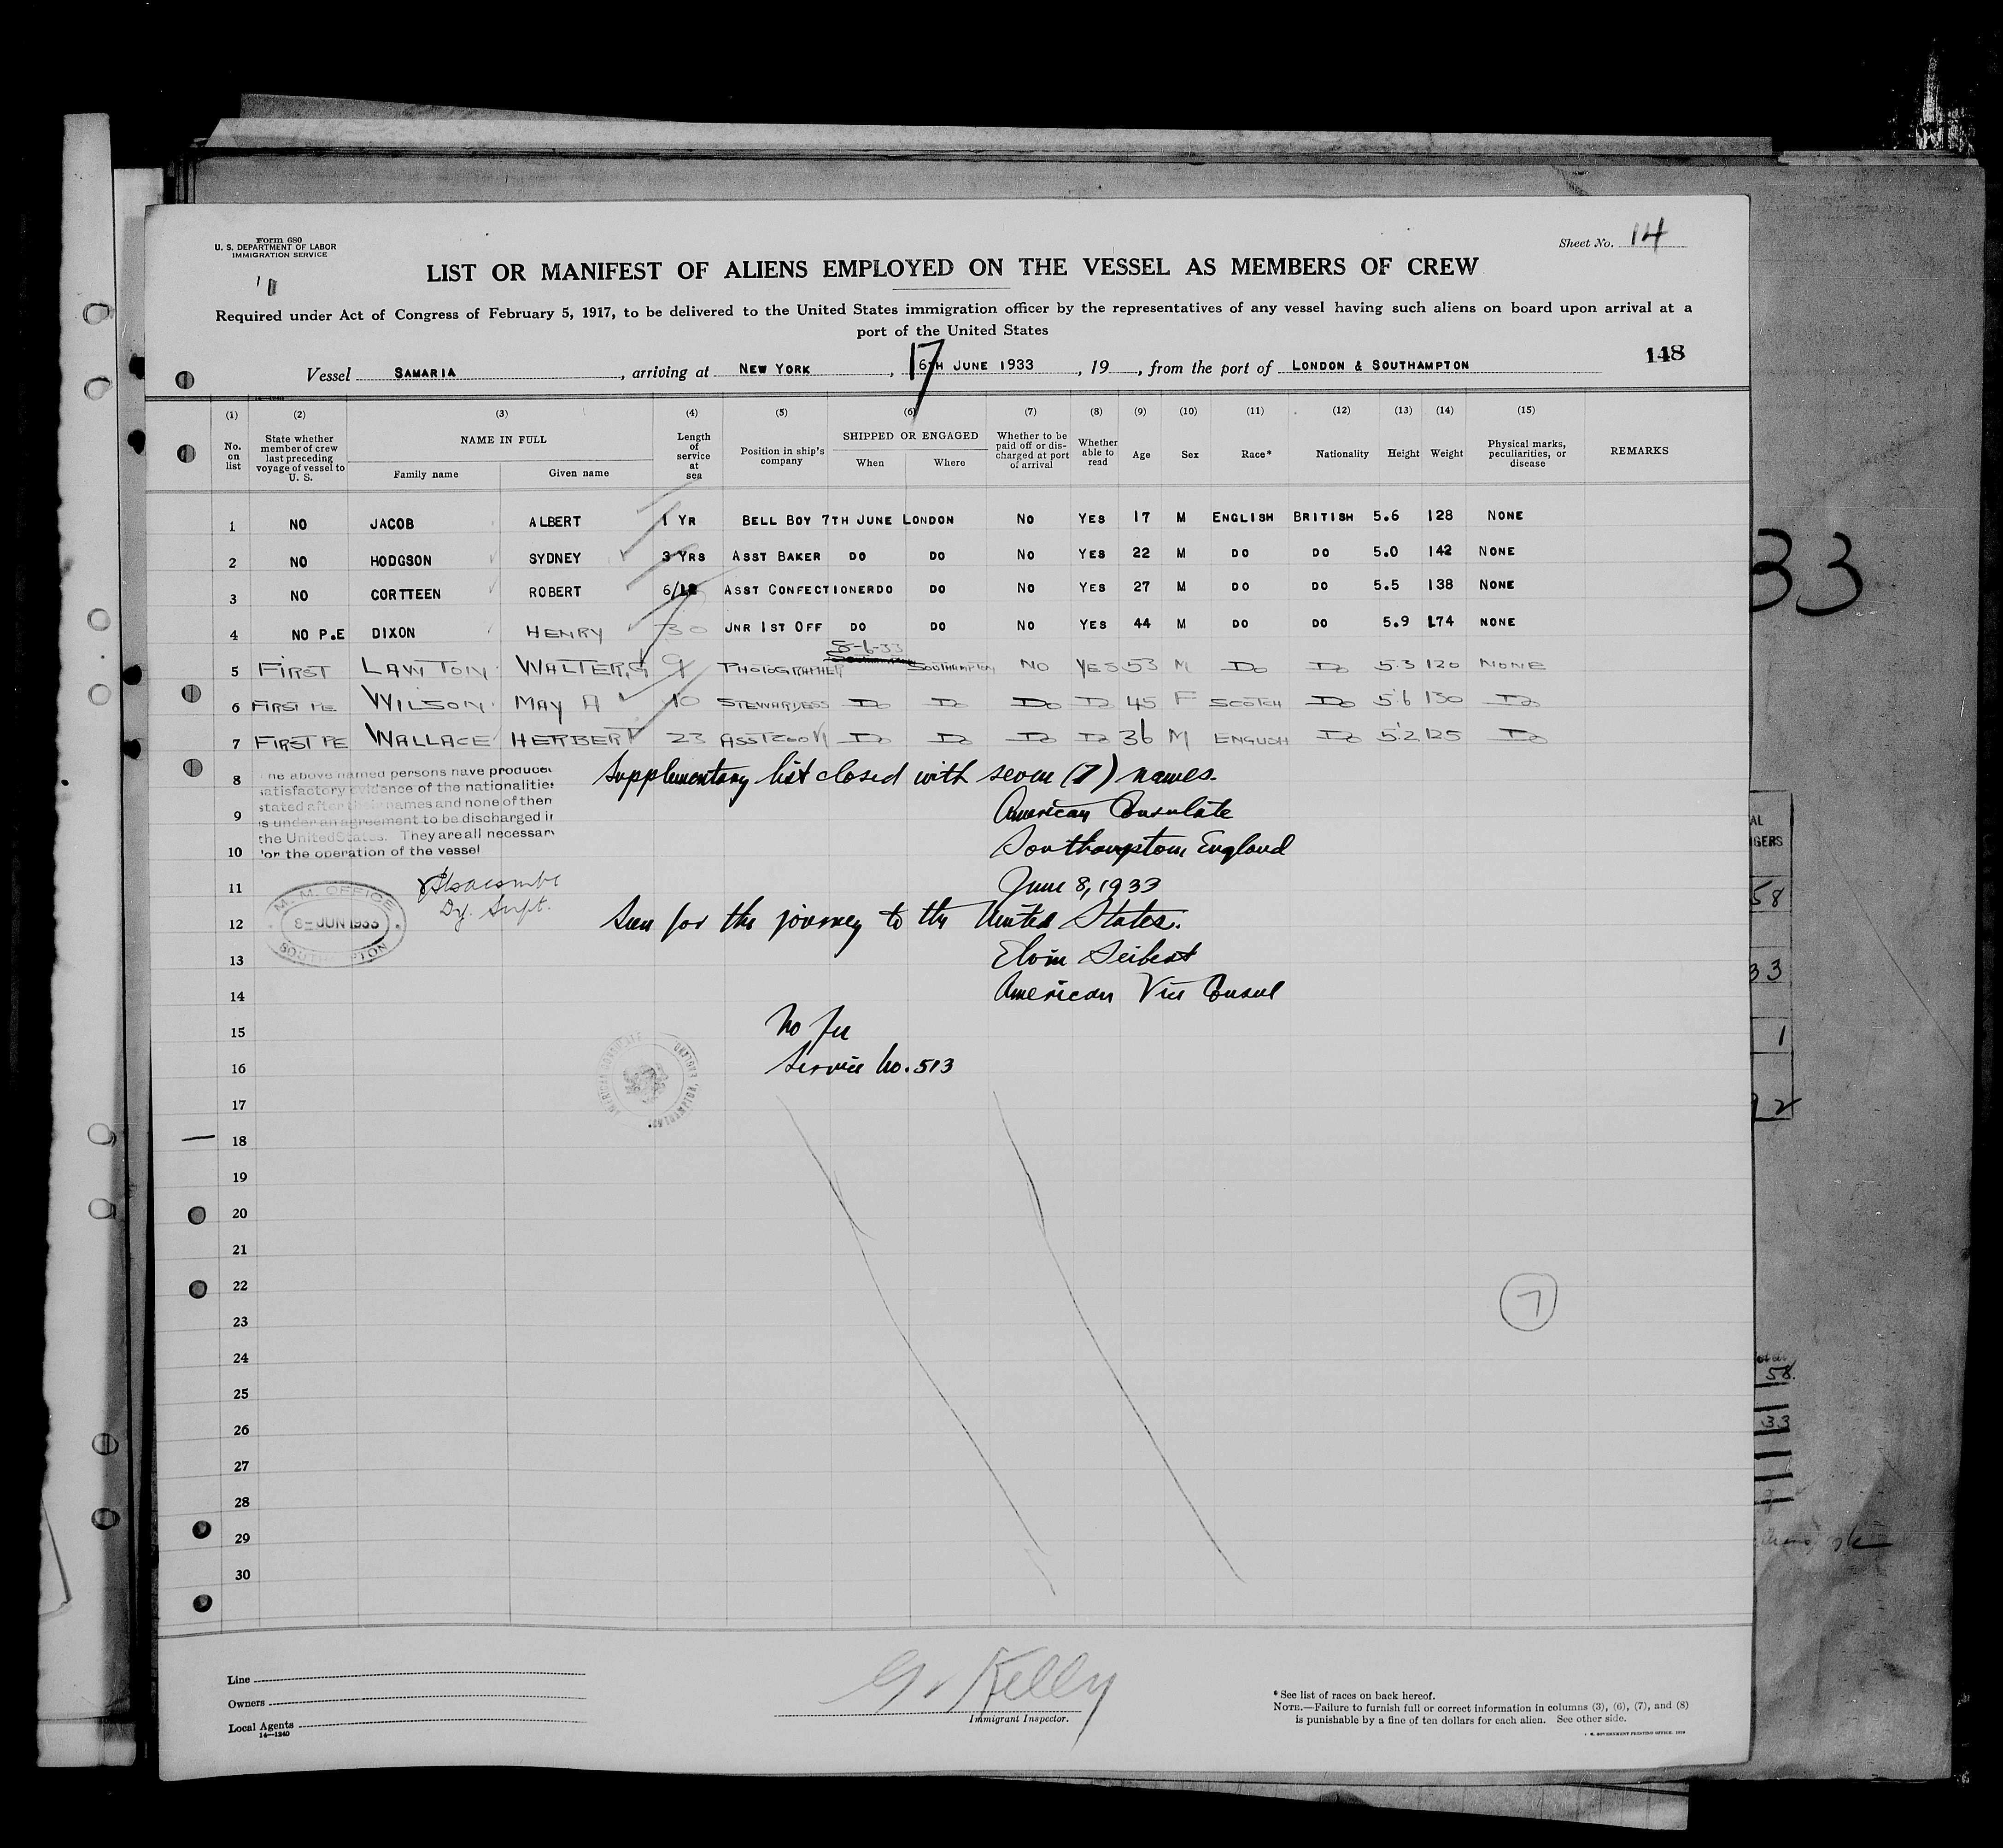 Form 680
U. S. DEPARTMENT OF LABOR
IMMIGRATION SERVICE
Sheet No. 14
LIST OR MANIFEST OF ALIENS EMPLOYED ON THE VESSEL AS MEMBERS OF CREW
Required under Act of Congress of February 5, 1917, to be delivered to the United States immigration officer by the representatives of any vessel having such aliens on board upon arrival at a
port of the United States
148
Vessel SAMARIA, arriving at NEW YORK, 17 6TH JUNE 1933, 19, from the port of LONDON & SOUTHAMPTON
(1) (2) (3) (4) (5) (6) (7) (8) (9) (10) (11) (12) (13) (14) (15)
No. on list State whether member of crew last preceding voyage of vessel to U. S. NAME IN FULL Family name Given name Length of service at sea Position in ship's company SHIPPED OR ENGAGED When Where Whether to be paid off or discharged at port of arrival Whether able to read Age Sex Race* Nationality Height Weight Physical marks, peculiarities, or disease REMARKS
1 NO JACOB ALBERT 1 YR BELL BOY 7TH JUNE LONDON NO YES 17 M ENGLISH BRITISH 5.6 128 NONE
2 NO HODGSON SYDNEY 3 YRS ASST BAKER DO DO NO YES 22 M DO DO 5.0 142 NONE
3 NO CORTTEEN ROBERT 6/12 ASST CONFECTIONERDO DO NO YES 27 M DO DO 5.5 138 NONE
4 NO P.E DIXON HENRY 30 JNR 1ST OFF DO DO NO YES 44 M DO DO 5.9 174 NONE
5 FIRST LAWTON WALTER.G 9 PHOTOGRAPHER 8-6-33 SOUTHAMPTON NO YES 53 M DO DO 5.3 120 NONE
6 FIRST PE WILSON MAY A 10 STEWARDESS DO DO DO DO 45 F SCOTCH DO 5.6 130 DO
7 FIRST PE WALLACE HERBERT 23 ASST COOK DO DO DO DO 36 M ENGLISH DO 5.2 125 DO
8 Supplementary list closed with seven (7) names.
he above named persons have produce
satisfactory evidence of the nationalities
stated after their names and none of them
9 American Consulate
is under an agreement to be discharged in
the United States. They are all necessary
10 Southampton, England
for the operation of the vessel
11 June 8, 1933
Dy. Supt.
M. M. OFFICE
8- JUN 1933
SOUTHAMPTON
12 Seen for the journey to the United States.
13 Elvin Seibert
14 American Vice Consul
15 No fee
16 Service No. 513
AMERICAN CONSULATE SOUTHAMPTON, ENGLAND
17
18
19
20
21
22
23
7
24
25
26
27
28
29
30
Line
Owners
Local Agents
14—1240
G. Kelly
Immigrant Inspector.
* See list of races on back hereof.
NOTE.—Failure to furnish full or correct information in columns (3), (6), (7), and (8)
is punishable by a fine of ten dollars for each alien. See other side.
33
58
33
1
92
58
33